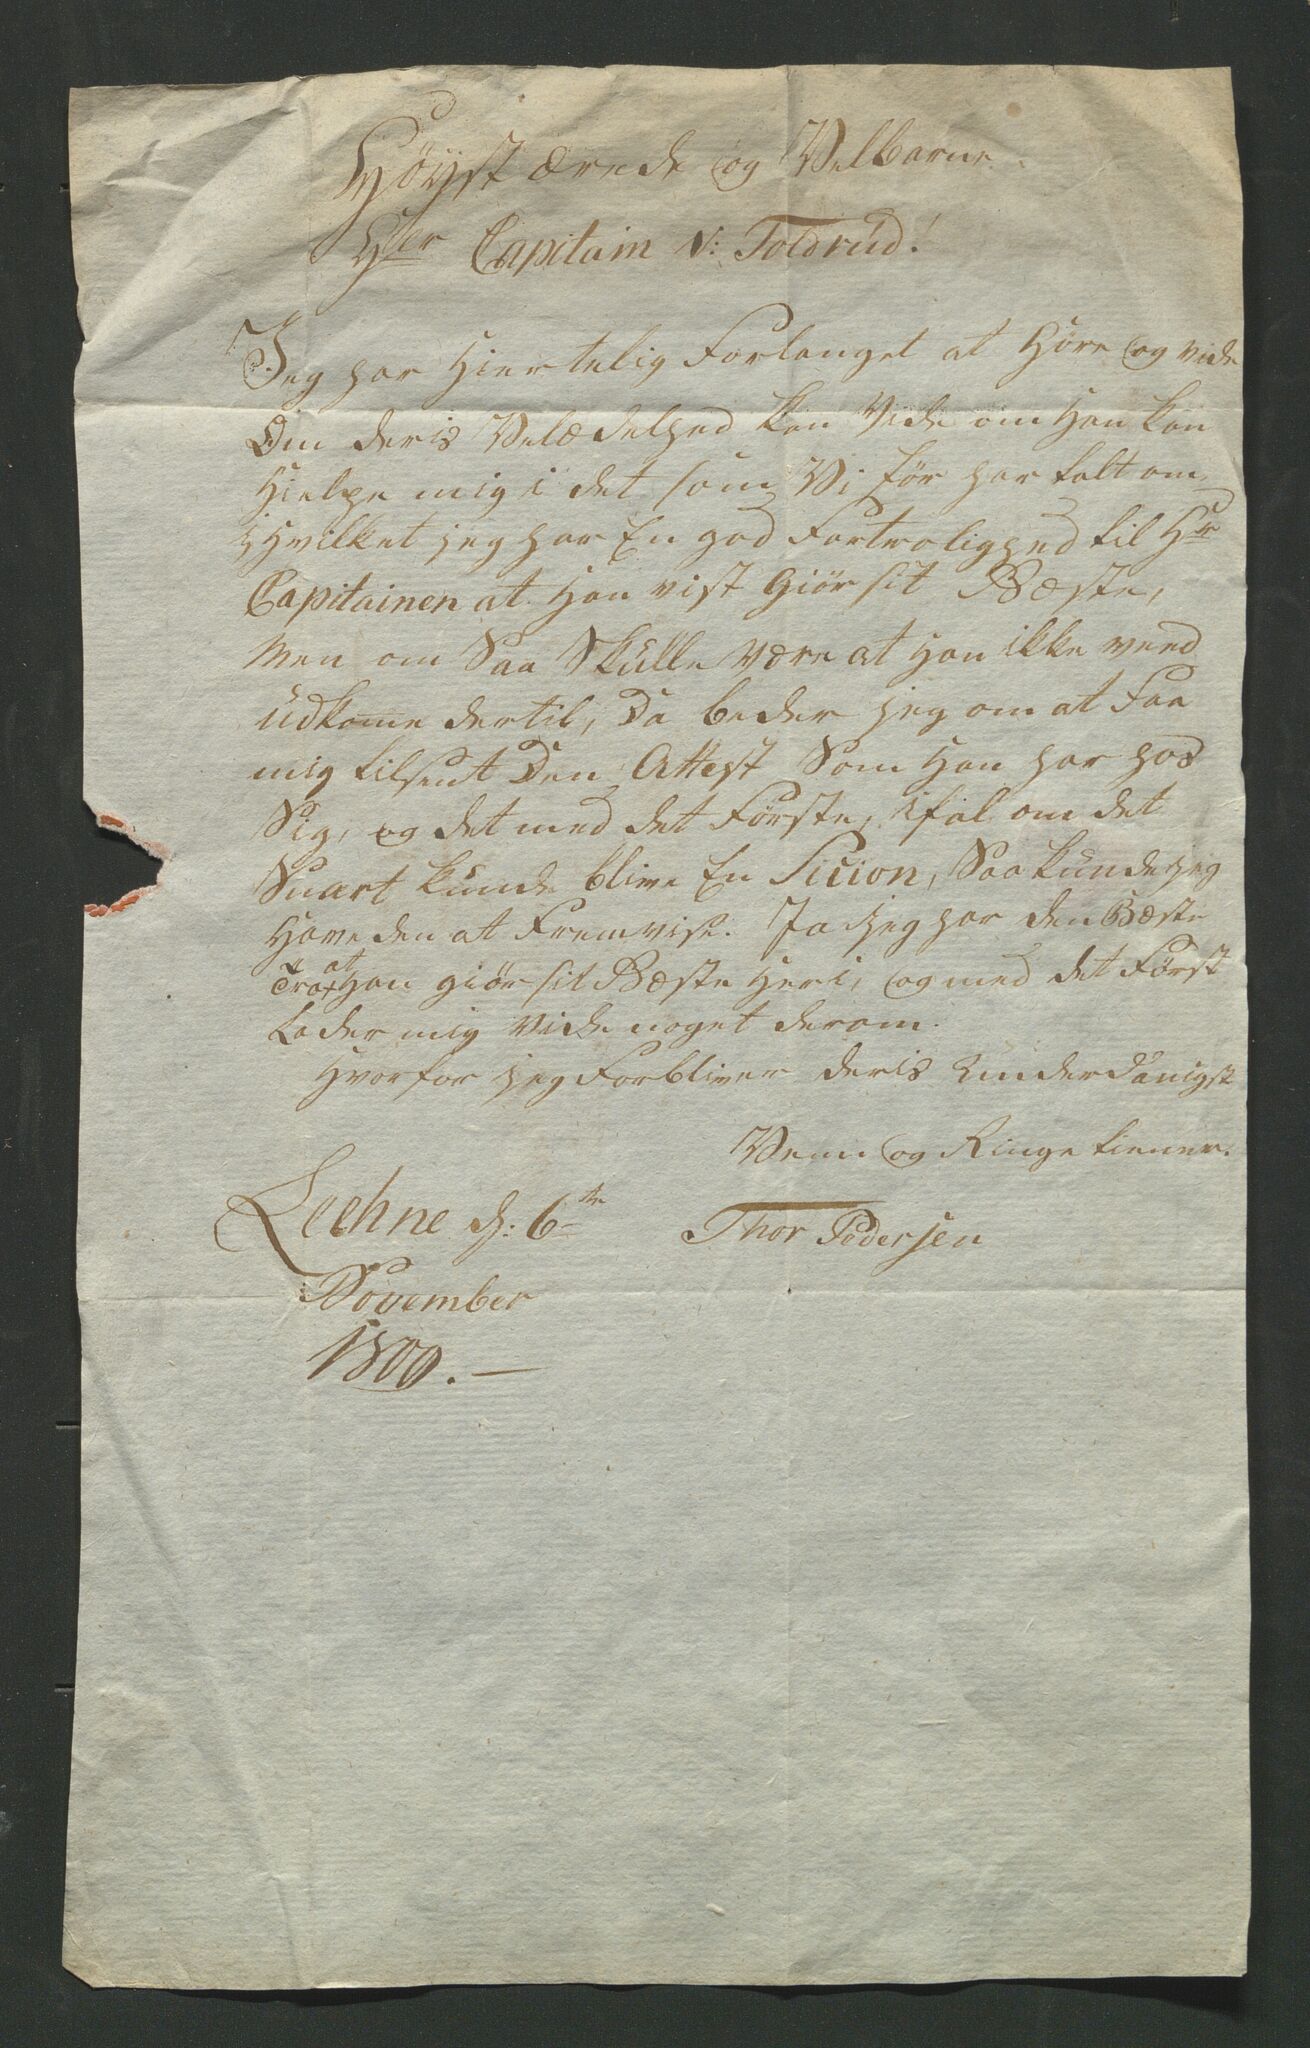 Höyst ærede og Velbarne
Her Capitain v: Toldrud!
Jeg har Hiertelig Forlanget at Höre og vide
Om deris Velædelhed kan Vide om Han kan
Hielpe mig i det som Vi för har talt om
i Hvilket jeg har En god Fortrolighed til Hr
Capitainen at Han vist Giör sit Bæste,
Men om Saa Skulle være at Han ikke veed
udkome dertil, Da beder jeg om at Faa
mig tilsent Den Attest Som Han har hos
Sig, og det med det Förste, ifal om det
Snart kunde blive En Sicion, Saa kunde jeg
Have den at Fremvise. Ja jeg har den Bæste
Troe at Han giör sit Bæste Heri, og med det Först
Lader mig Vide noget derom.
Hvorfor jeg Forbliver deris Underdanigst
Venn og Ringe tiener.
Leehne d: 6te Thor Pedersen
November
1800. —